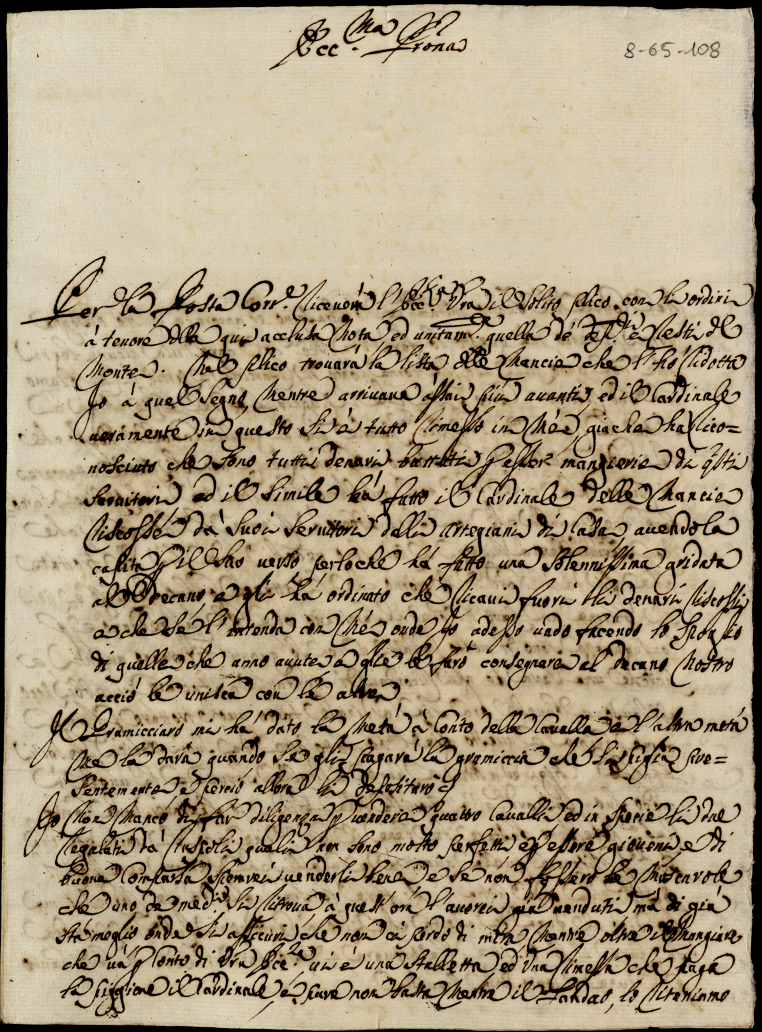 Ecc.ma Prona
8-65-108
Per la Posta Corr.e riceverà l'Ecc.za Vra il solito plico con li ordini
à tenore della qui acclusa Nota, ed unitam.te quella de e Resti del
Monte. Nel plico trovarà la lista delle Mancie che l'hò ridotta
Io à quel Segno, Mentre arrivava assai più avanti, ed il Cardinale
veramente in questo si è tutto rimesso in Mè, giache hà rico=
nosciuto che sono tutti denari buttati p esser mangierie di q.sti
Servitori, ed il simile hà fatto il Cardinale delle Mancie
riscosse dà suoi Servitori dalli artegiani di Casa, avendola
capita p il suo verso perloche hà fatto una solennissima gridata
al Decano e gli hà ordinato che ricavi fuori li denari riscossi
e che se l'intenda con Mè, onde Io adesso vado facendo lo spoglio
di quelle che anno avute e glie le farò consegnare al Decano Nostro
acciò le unisca con le altre
Il Gramicciaro mi hà dato la Metà à Conto della Cavalla e l'altra metà
Me la darà quando se gli pagarà la gramiccia che si piglia pre=
sentemente e perciò allora la depositarò
Io Non Manco di far diligenza p vendere quattro Cavalli ed in specie li due
regalati dà quali non sono molto perfetti p essere gioveni e di
buona Comparsa sperarei venderli bene, e se non fossero le
che uno de med.i si ritrova à quest'ora l'averei già venduti, mà di già
stà meglio onde si assicuri che non ci perdo di mira Mentre oltre il Mangiare
che và p Conto di Vra Ecc.za, vi è una stalletta ed una rimessa che paga
la piggione il Cardinale, e pure non basta Mentre il Landao, lo riteniamo